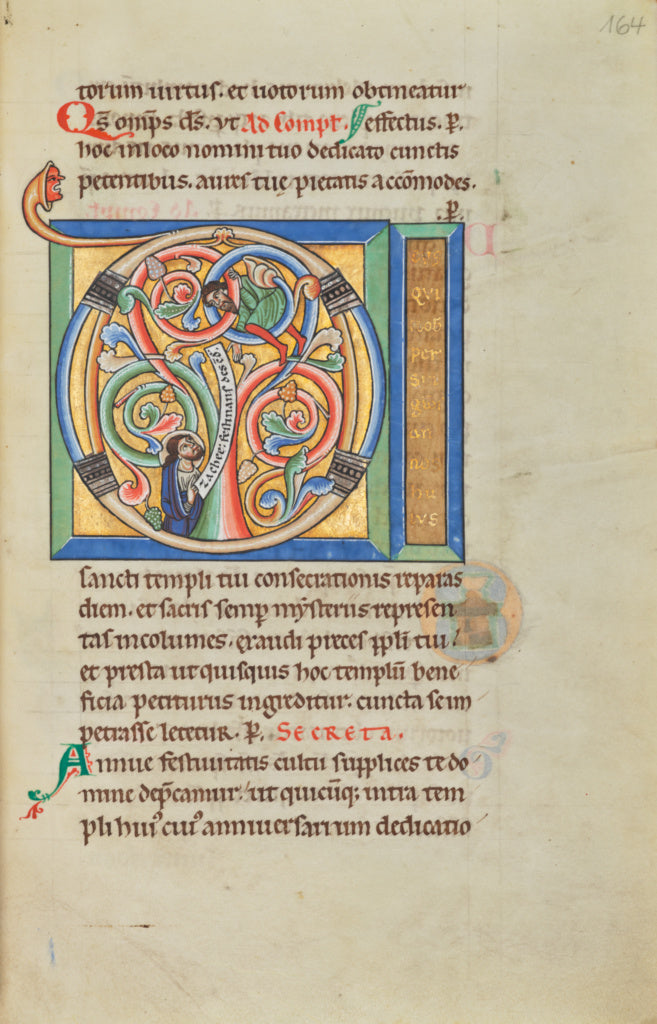 164
torum uirtus. et uotorum obtineatur
Q̄s om̄ps d̄s. vt Ad Compl̄. effectus. P.
hoc in loco nomini tuo dedicato cunctis
petentibus. aures tuę pietatis accōmodes.
P.
DS
QVI
NOB
PER
SIN
GV
zachee: festinans desc̄d̄
sancti templi tui consecrationis reparas
diem. et sacris semp̄ mysteriis represen
tas incolumes. exaudi preces ppl̄i tui.
et presta ut quisquis hoc templū bene
ficia petiturus ingreditur. cuncta se im
petrasse letetur. P. SECRETA.
Annue festiuitatis cultu supplices te do
mine dep̄camur. ut quicūq; intra tem
pli hui᾿ cui᾿ anniuersarium dedicatio